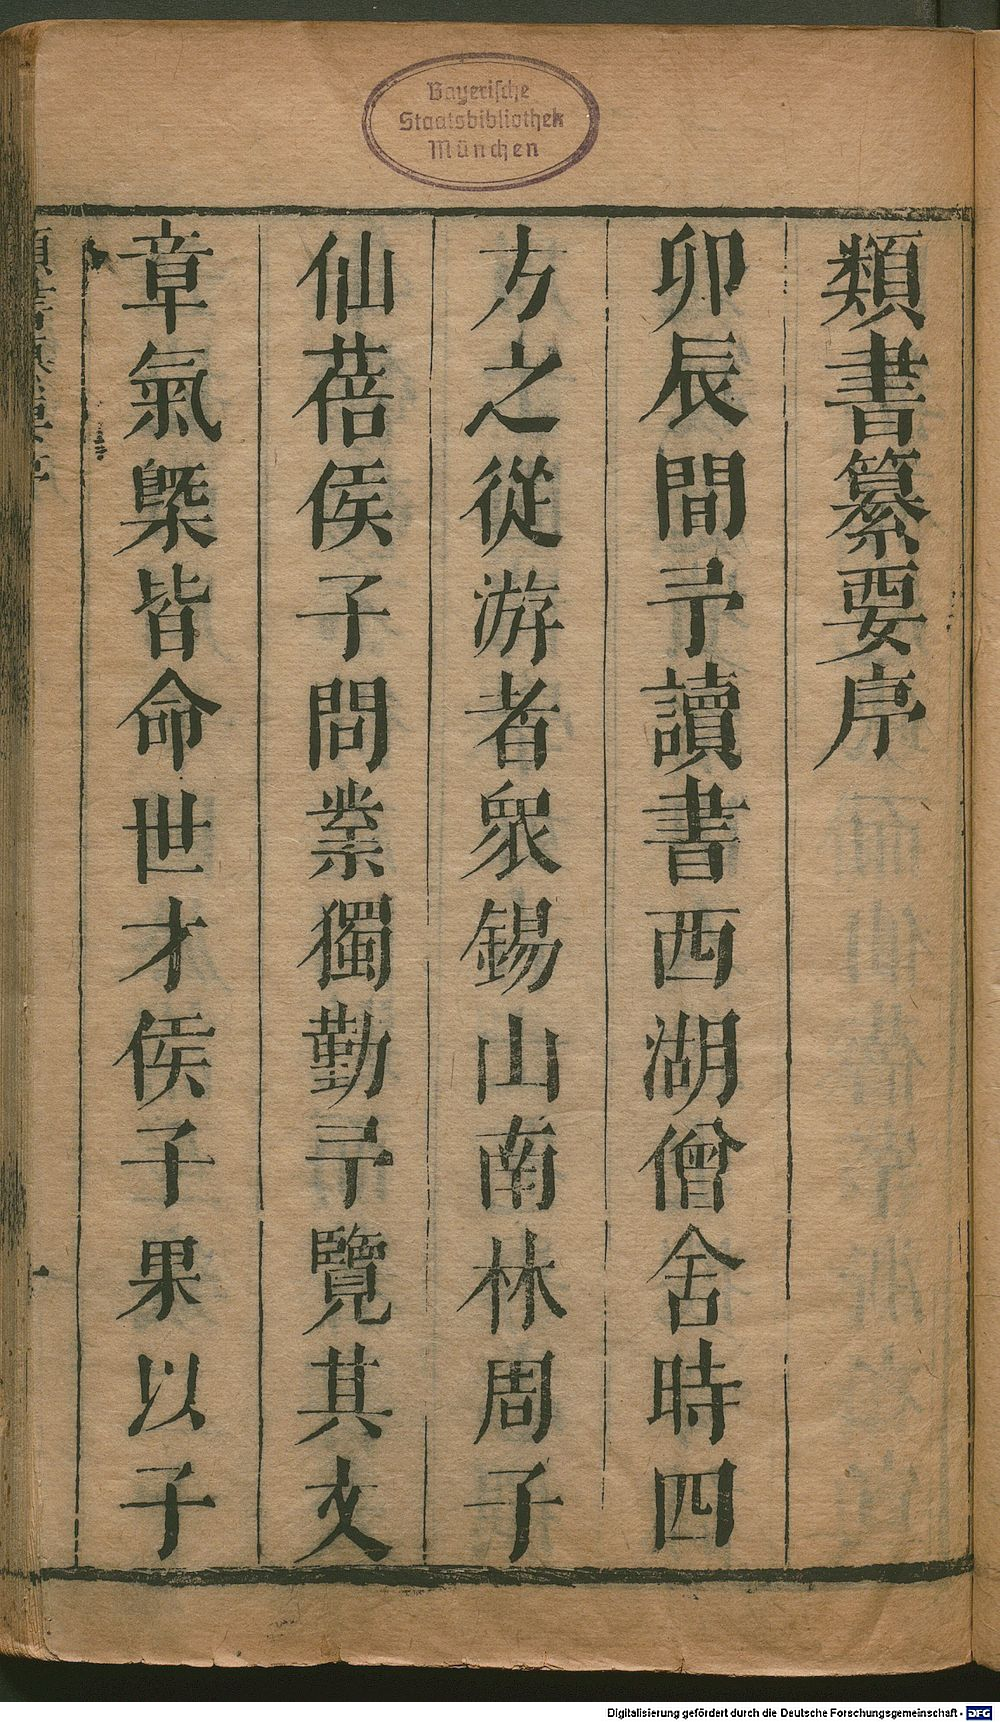 Bayerische
Staatsbibliothek
München
類書纂要序
卯辰間予讀書西湖僧舍時四
方之從游者眾錫山南林周子
仙蓓侯子問業獨勤予覽其文
章氣槩皆命世才侯子果以子
類書纂要序
一
Digitalisierung gefördert durch die Deutsche Forschungsgemeinschaft - DFG